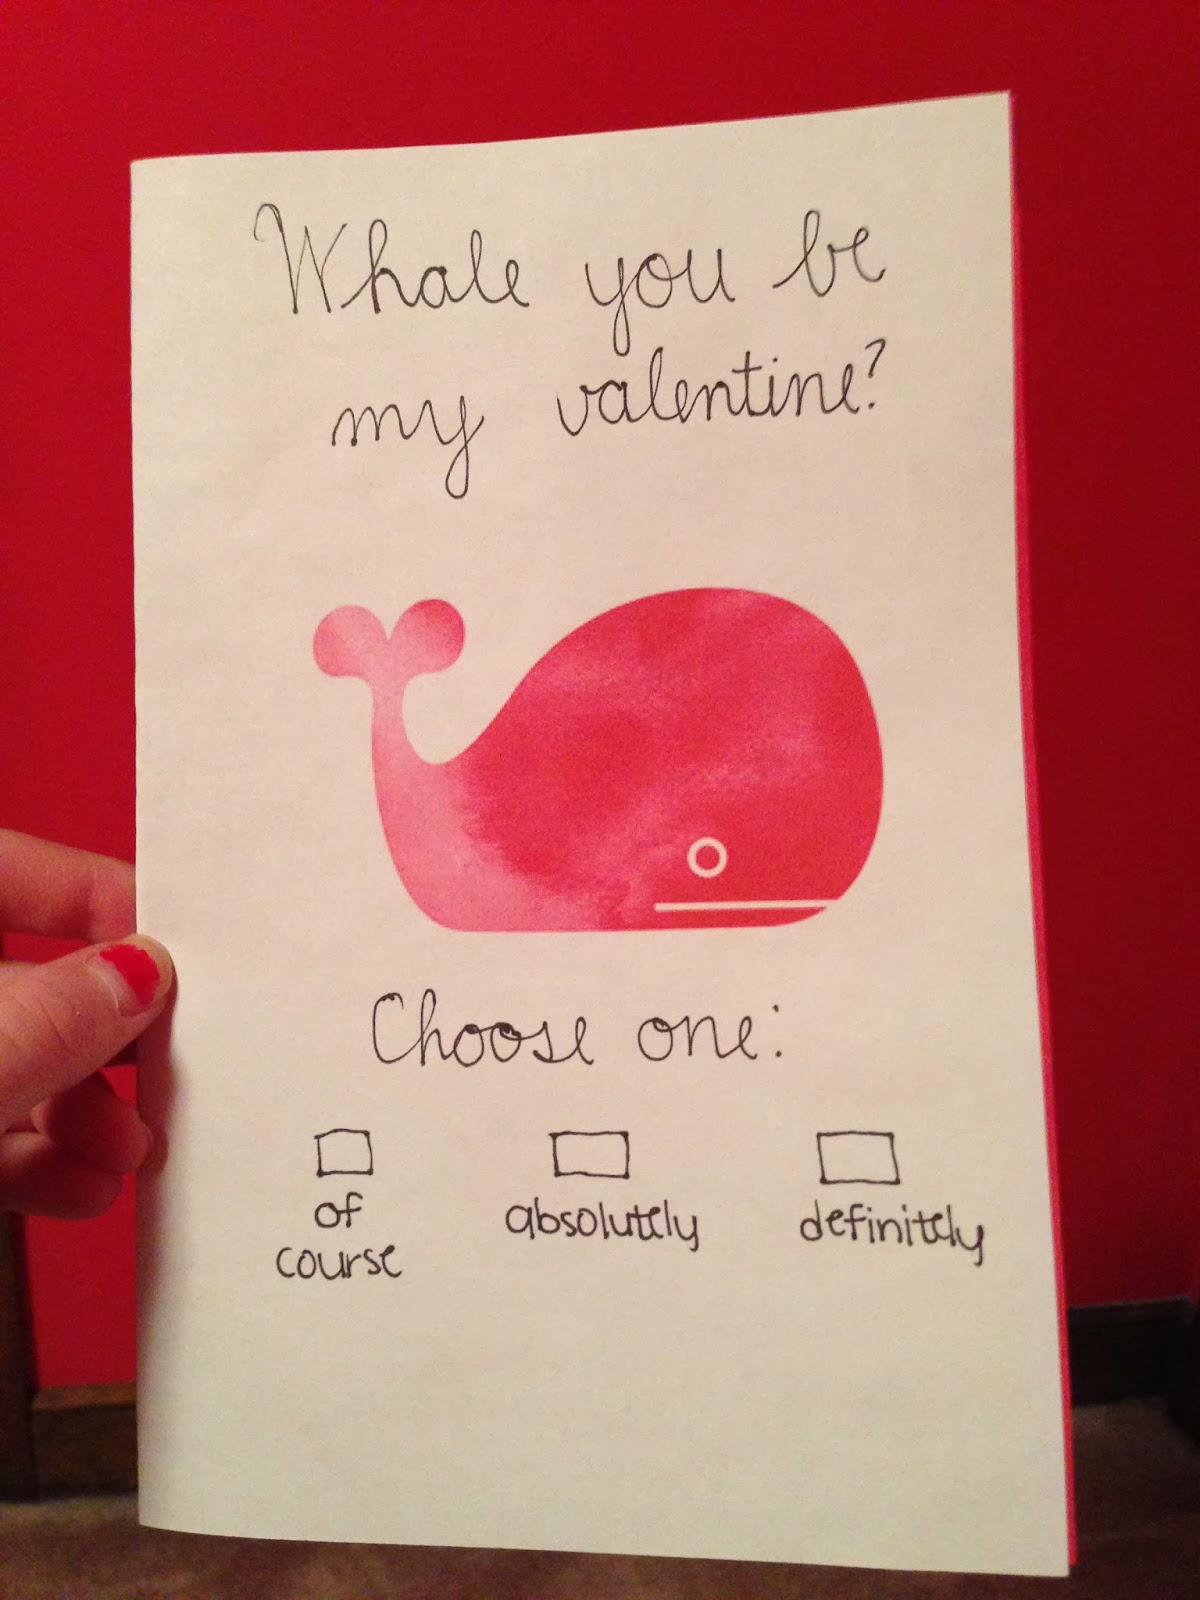 Whale you be
my valentine?
Choose one:
of absolutely definitely
course